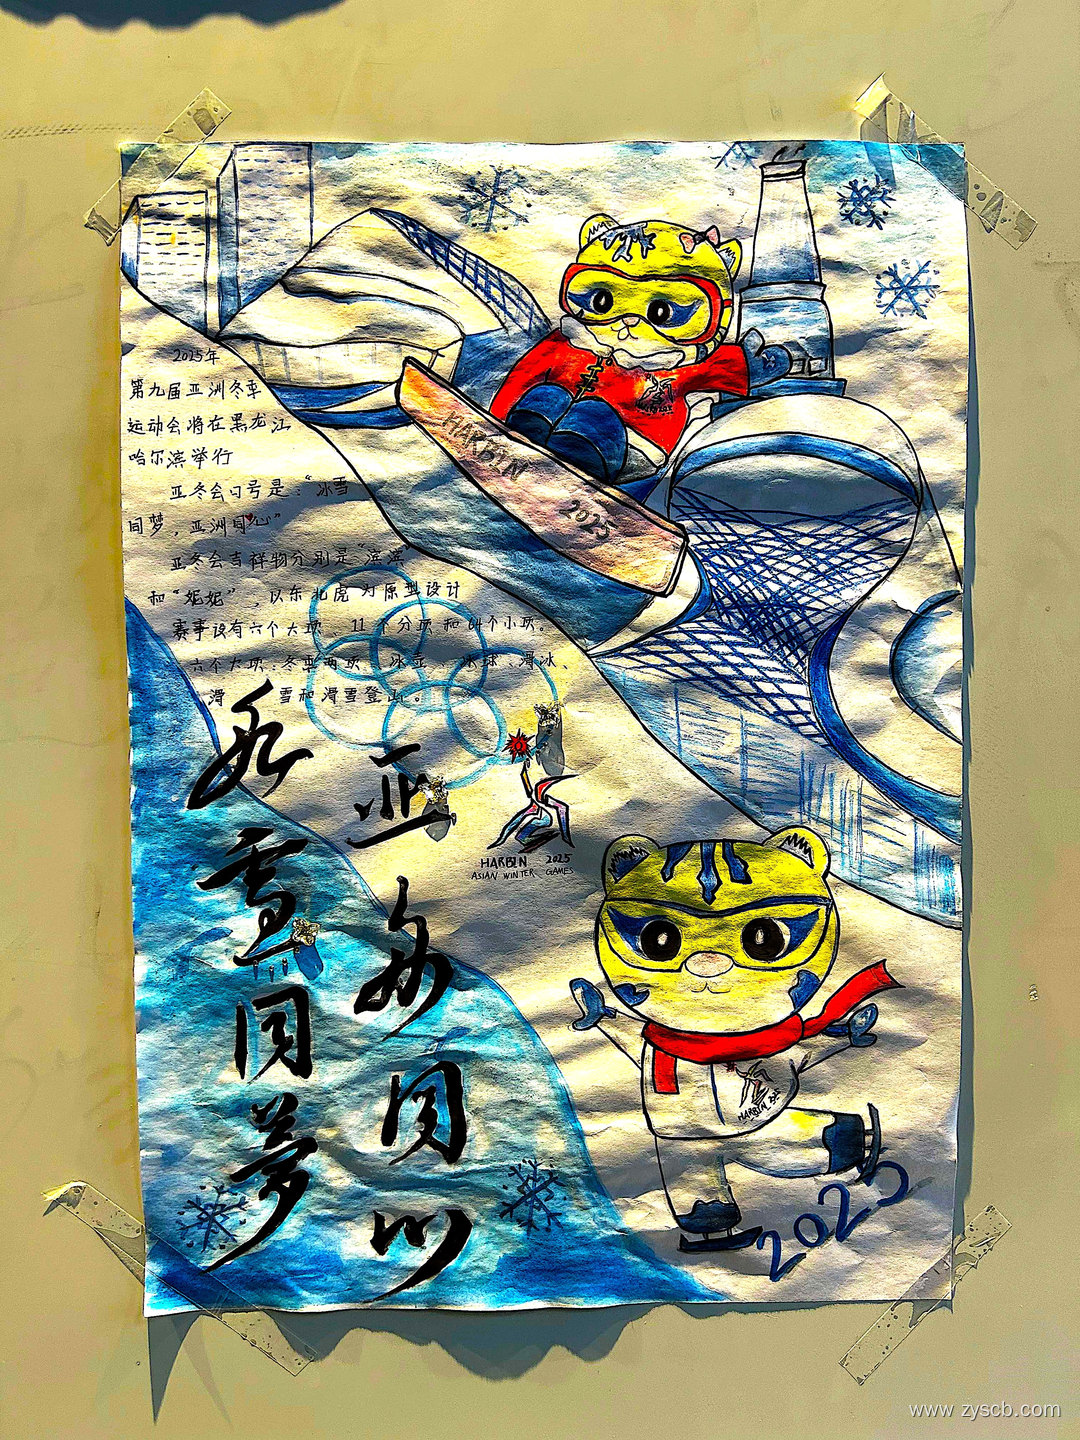 2025年
第九届亚洲冬季
运动会将在黑龙江
哈尔滨举行
亚冬会口号是:"冰雪
同梦,亚洲同心"
亚冬会吉祥物分别是"滨滨"
和"妮妮",以东北虎为原型设计
赛事设有六个大项、11个分项和64个小项。
六个大项:冬季两项、冰壶、冰球、滑冰、
滑 雪和滑雪登山。
HARBIN
2025
冰雪同梦
亚 同心
HARBIN 2025
ASIAN WINTER GAMES
HARBIN
2025
www.zyscb.com